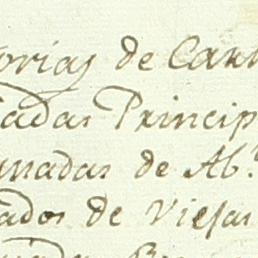 orias de Carn
adas Princip
madas de Ab.
ados de Viejas